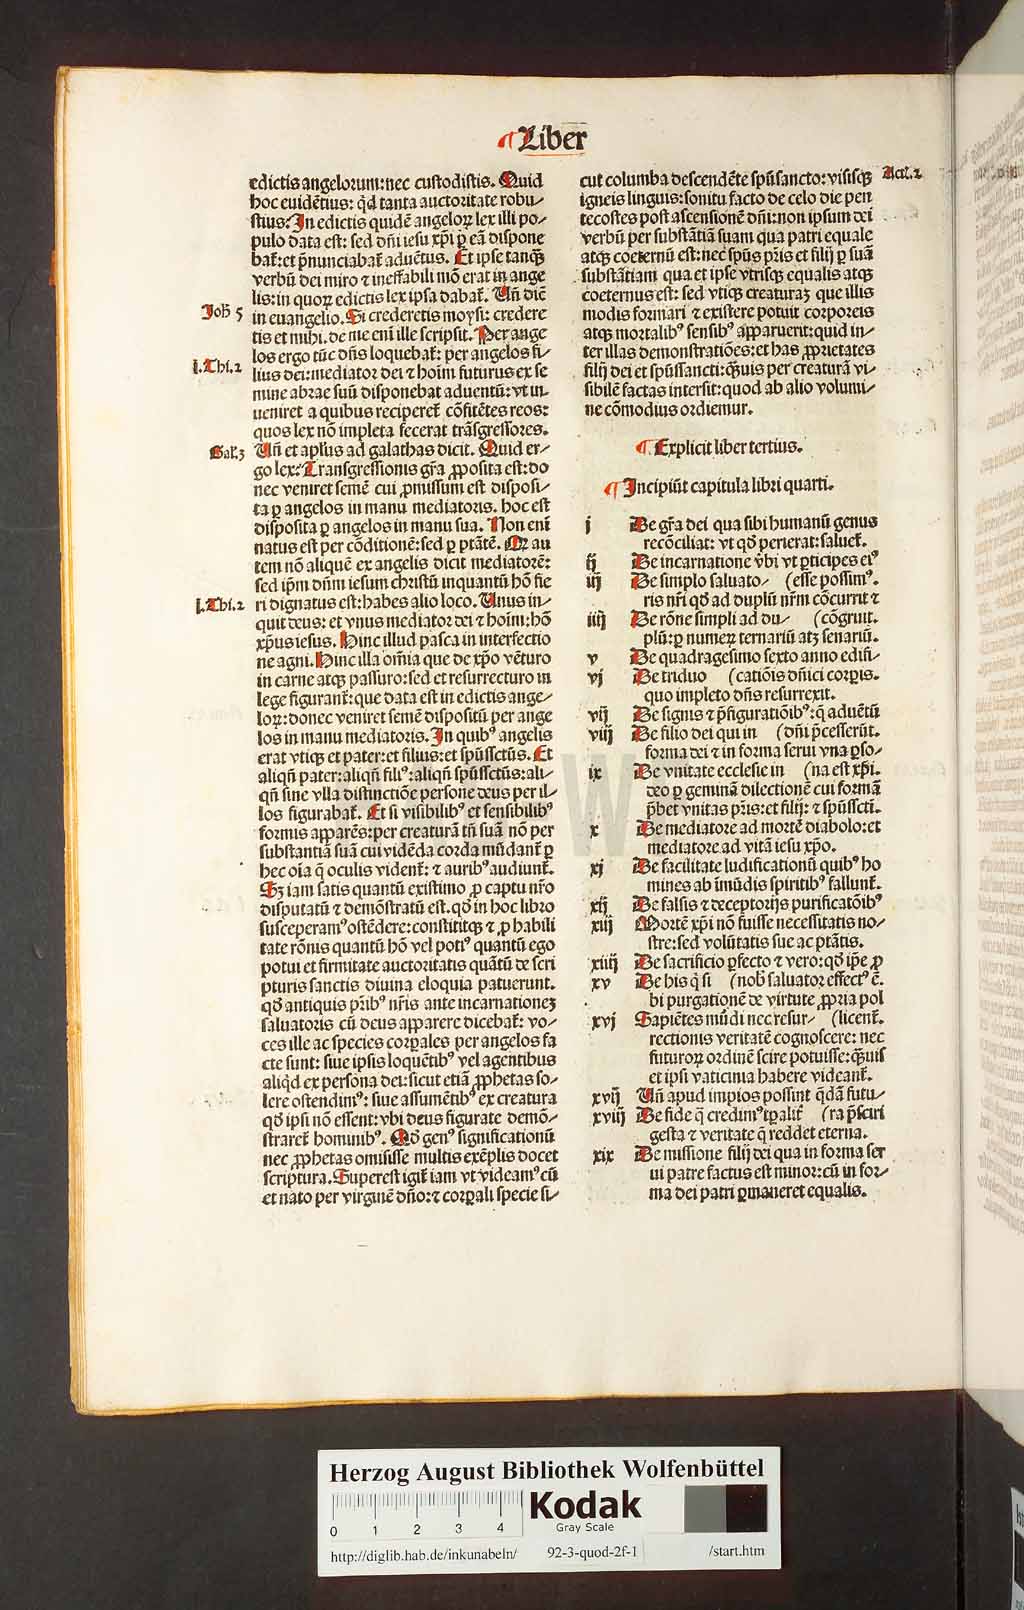 ¶ Liber
edictis angelorum: nec custodistis. Quid
hoc euidẽtius: qđ tanta auctoritate robu⸗
stius? In edictis quidẽ angeloꝝ lex illi po⸗
pulo data est: sed dñi iesu xp̃i ꝑ eã dispone
bat᷑: et p̃nunciabat᷑ aduẽtus. Et ipse tanqꝫ
verbũ dei miro ⁊ ineffabili mõ erat in ange
lis: in quoꝝ edictis lex ipsa dabat᷑. Uñ diẽ
Joh̃ 5
in euangelio. Si crederetis moysi: credere
tis et mihi. de me em̃ ille scripsit. Per ange
los ergo tũc dñs loquebat᷑: per angelos fi⸗
j. Thi. 2
lius dei: mediator dei ⁊ hoĩm futurus ex se
mine abrae suũ disponebat aduentũ: vt in⸗
ueniret a quibus reciperet᷑ cõfitẽtes reos:
quos lex nõ impleta fecerat trãsgressores.
Gal̃. 3
Uñ et apl̃us ad galathas dicit. Quid er⸗
go lex? Transgressionis gr̃a ꝓposita est: do
nec veniret semẽ cui ꝓmissum est disposi⸗
ta ꝑ angelos in manu mediatoris. hoc est
disposita ꝑ angelos in manu sua. Non eni᷑
natus est per cõditionẽ: sed ꝑ ptãtẽ. Qꝛ au
tem nõ aliquẽ ex angelis dicit mediatorẽ:
sed ip̃m dñm iesum christũ inquantũ hõ fie
j. Thi. 2
ri dignatus est: habes alio loco. Unus in⸗
quit deus: et vnus mediatoꝛ dei ⁊ hoĩm: hõ
xp̃us iesus. Hinc illud pasca in interfectio
ne agni. Hinc illa om̃ia que de xp̃o vẽturo
in carne atqꝫ passuro: sed et resurrecturo in
lege figurant᷑: que data est in edictis ange⸗
loꝝ: donec veniret semẽ dispositũ per ange
los in manu mediatoris. In quibꝰ angelis
erat vtiqꝫ et pater: et filius: et spũssctũs. Et
aliqñ pater: aliqñ filiꝰ: aliqñ spũssctũs: ali⸗
qñ sine vlla distinctiõe persone deus per il⸗
los figurabat᷑. Et si visibilibꝰ et sensibilibꝰ
formis apparẽs: per creaturã tñ suã nõ per
substantiã suã cui vidẽda corda mũdant᷑ ꝑ
hec oĩa q̃ oculis vident᷑: ⁊ auribꝰ audiunt᷑.
Sꝫ iam satis quantũ existimo ꝓ captu nr̃o
disputatũ ⁊ demõstratũ est. qđ in hoc libro
susceperamꝰ ostẽdere: constititqꝫ ⁊ ꝓ habili
tate rõnis quantũ hõ vel potiꝰ quantũ ego
potui et firmitate auctoritatis quãtũ de scri
pturis sanctis diuina eloquia patuerunt.
qđ antiquis pr̃ibꝰ nr̃is ante incarnationeꝫ
saluatoris cũ deus apparere dicebat᷑: vo⸗
ces ille ac species corꝑales per angelos fa
cte sunt: siue ipsis loquẽtibꝰ vel agentibus
aliqđ ex persona dei: sicut etiã ꝓphetas so⸗
lere ostendimꝰ: siue assumẽtibꝰ ex creatura
qđ ipsi nõ essent: vbi deus figurate demõ⸗
straret᷑ hominibꝰ. Qđ genꝰ significationũ
nec ꝓphetas omisisse multis exẽplis docet
scriptura. Superest igit᷑ iam vt videamꝰ cũ
et nato per virginẽ dño: ⁊ corꝑali specie si⸗
cut columba descendẽte spũsancto: visisqꝫ
Act̃. 2
igneis linguis: sonitu facto de celo die pen
tecostes post ascensionẽ dñi: non ipsum dei
verbũ per substãtiã suam qua patri equale
atqꝫ coeternũ est: nec spũs pr̃is et filij ꝑ suã
substãtiam qua et ipse vtrisqꝫ equalis atqꝫ
coeternus est: sed vtiqꝫ creaturaꝫ que illis
modis formari ⁊ existere potuit corporeis
atqꝫ mortalibꝰ sensibꝰ apparuerit: quid in⸗
ter illas demonstratiões: et has ꝓprietates
filij dei et spũssancti: qꝫuis per creaturã vi⸗
sibilẽ factas intersit: quod ab alio volumi⸗
ne cõmodius ordiemur.
¶ Explicit liber tertius.
¶ Incipiũt capitula libri quarti.
j De gr̃a dei qua sibi humanũ genus
recõciliat: vt qđ perierat: saluet᷑.
ij De incarnatione v̾bi vt ꝑticipes eiꝰ
iij De simplo saluato⸗ (esse possimꝰ.
ris nr̃i qđ ad duplũ nr̃m cõcurrit ⁊
iiij De rõne simpli ad du⸗ (cõgruit.
plũ: ꝑ numeꝝ ternariũ atqꝫ senariũ.
v De quadragesimo sexto anno edifi⸗
vj De triduo (catiõis dñici corꝑis.
quo impleto dñs resurrexit.
vij De signis ⁊ p̃figuratiõibꝰ: q̃ aduẽtũ
viij De filio dei qui in (dñi p̃cesserũt.
forma dei ⁊ in forma serui vna ꝑso⸗
ix De vnitate ecclesie in (na est xp̃i.
deo ꝑ geminã dilectionẽ cui formã
p̃bet vnitas pr̃is: et filij: ⁊ spũsscti.
x De mediatore ad mortẽ diabolo: et
mediatore ad vitã iesu xp̃o.
xj De facilitate ludificationũ quibꝰ ho
mines ab ĩmũdis spiritibꝰ fallunt᷑.
xij De falsis ⁊ deceptorijs purificatõibꝰ
xiij Mortẽ xp̃i nõ fuisse necessitatis no⸗
stre: sed volũtatis sue ac ptãtis.
xiiij De sacrificio ꝑfecto ⁊ vero: qđ ip̃e ꝓ
xv De his q̃ si (nob̃ saluator effectꝰ ẽ.
bi purgationẽ de virtute ꝓpria pol
xvj Sapiẽtes mũdi nec resur⸗ (licent᷑.
rectionis veritatẽ cognoscere: nec
futuroꝝ ordinẽ scire potuisse: qꝫuis
et ipsi vaticinia habere videant᷑.
xvij Uñ apud impios possint q̃dã futu⸗
xviij De fide q̃ credimꝰ tꝑalit᷑ (ra p̃sciri
gesta ⁊ veritate q̃ reddet eterna.
xix De missione filij dei qua in forma ser
ui patre factus est minor: cũ in for⸗
ma dei patri ꝑmaneret equalis.
Herzog August Bibliothek Wolfenbüttel
0 1 2 3 4
Kodak
Gray Scale
http://diglib.hab.de/inkunabeln/ 92-3-quod-2f-1 /start.htm